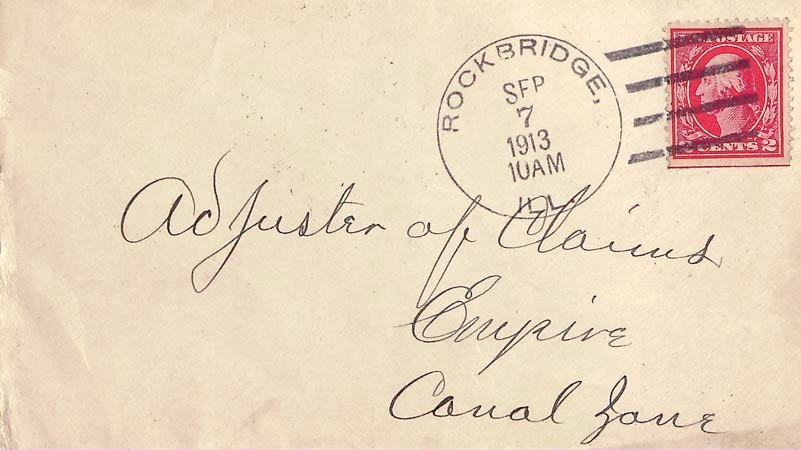 ROCKBRIDGE,
SEP
7
1913
10AM
ILL
U.S. POSTAGE
2 CENTS 2
Adjuster of Claims
Empire
Canal Zone